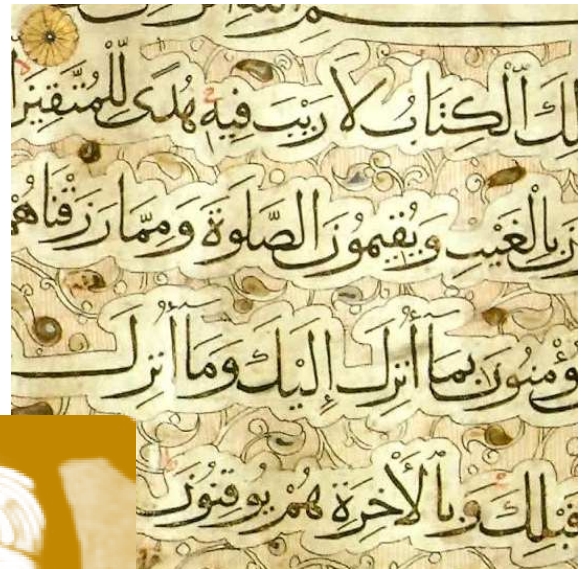 لِكَ الْكِتَابُ لَا رَيْبَ فِيهِ هُدًى لِّلْمُتَّقِينَ
نَ بِالْغَيْبِ وَيُقِيمُونَ الصَّلٰوةَ وَمِمَّا رَزَقْنَاهُمْ
ؤْمِنُونَ بِمَا أُنْزِلَ إِلَيْكَ وَمَا أُنْزِلَ
قَبْلِكَ وَبِالْأَخِرَةِ هُمْ يُوقِنُونَ